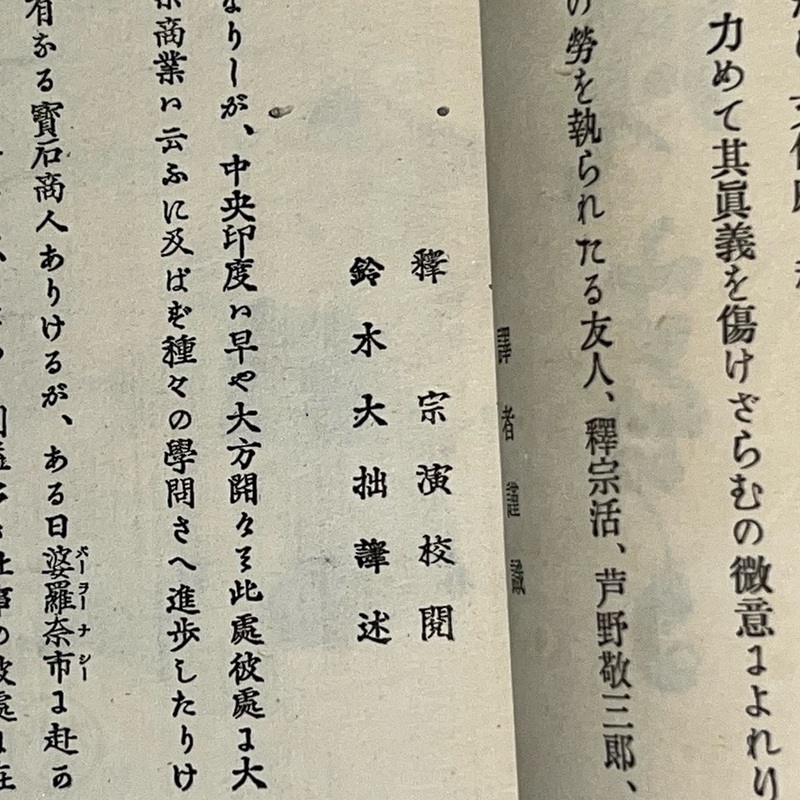 力めて其眞義を傷けざらむの微意によれり
勞を執られたる友人、釋宗活、芦野敬三郎、
譯者謹識
釋宗演校閲
鈴木大拙譯述
なりしが、中央印度ハ早や大方開々て此處彼處に大
商業ハ云ふに及ばず種々の學問さへ進歩したりけ
有なる寳石商人ありけるが、ある日婆羅奈市に赴か
バーラーナシー